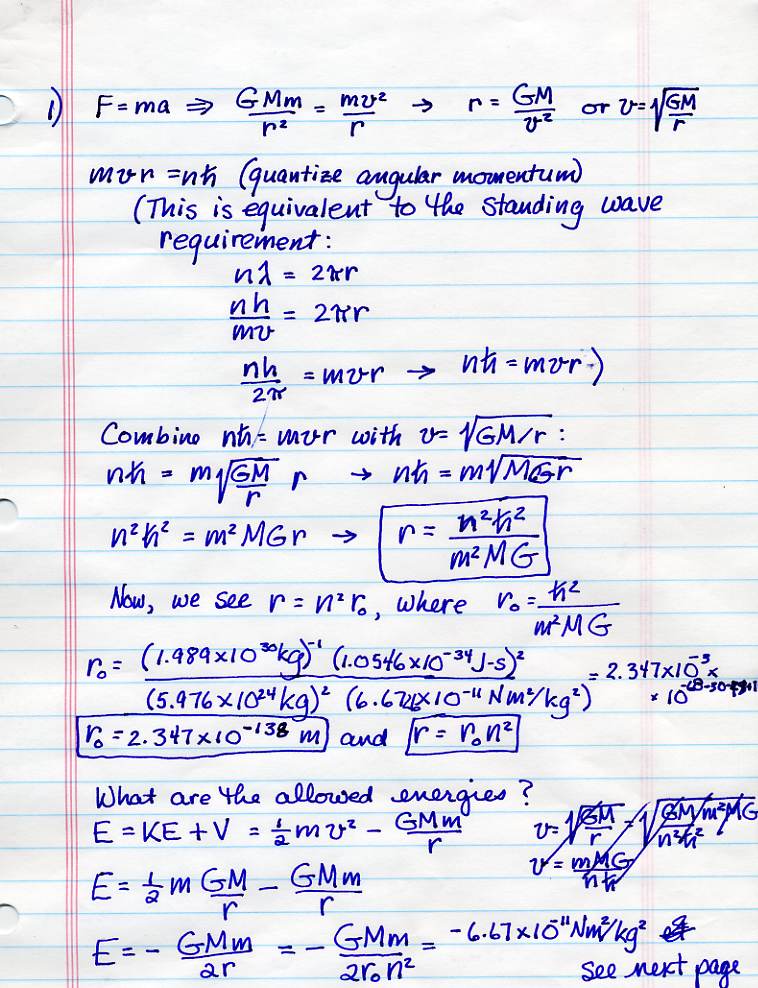 1) F = ma ⇒ GMm/r² = mv²/r → r = GM/v² or v = √(GM/r)
mvr = nħ (quantize angular momentum)
(This is equivalent to the standing wave
requirement:
nλ = 2πr
nh/mv = 2πr
nh/2π = mvr → nħ = mvr.)
Combine nħ = mvr with v = √(GM/r):
nħ = m√(GM/r) r → nħ = m√(MGr)
n²ħ² = m²MGr → r = n²ħ²/m²MG
Now, we see r = n²r₀, where r₀ = ħ²/m²MG
r₀ = (1.989×10³⁰kg)⁻¹ (1.0546×10⁻³⁴J-s)² / (5.976×10²⁴kg)² (6.67×10⁻¹¹Nm²/kg²) = 2.347×10⁻³ ×
r₀ = 2.347×10⁻¹³⁸ m and r = r₀n²
What are the allowed energies?
E = KE + V = ½mv² − GMm/r
v = √(GM/r) = √(GM m²MG/n²ħ²)
v = mMG/nħ
E = ½m GM/r − GMm/r
E = − GMm/2r = − GMm/2r₀n² = −6.67×10⁻¹¹Nm²/kg²
see next page